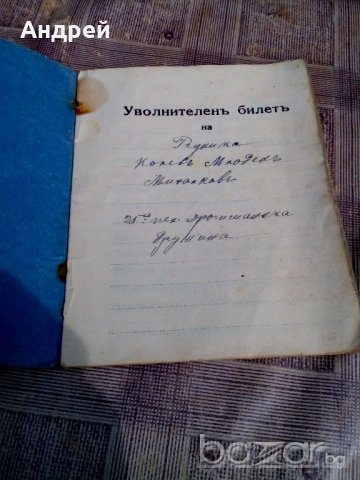 Андрей
Уволнителенъ билетъ
на
Редника
Колевъ Младенъ
Михалковъ
21ва пех. Прогимаона
Дружина
bazar.bg